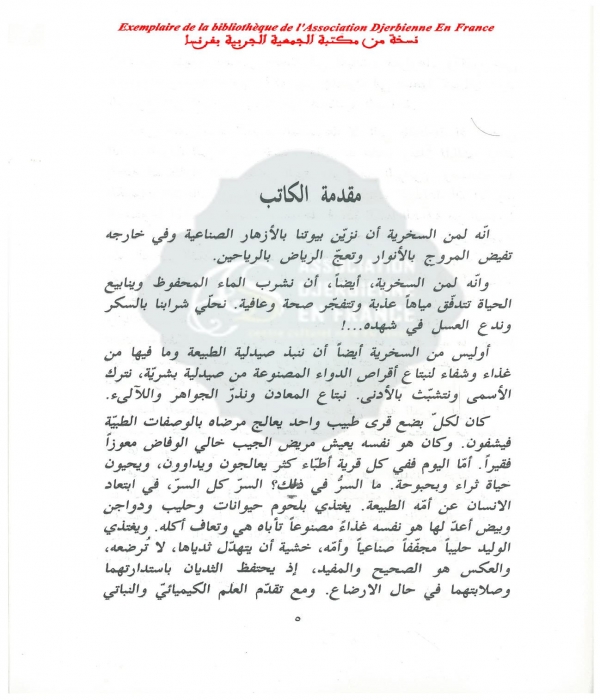 Exemplaire de la bibliothèque de l'Association Djerbienne En France
نسخة من مكتبة الجمعية الجربية بفرنسا
مقدمة الكاتب
انّه لمن السخرية أن نزيّن بيوتنا بالأزهار الصناعية وفي خارجه
تفيض المروج بالأنوار وتعجّ الرياض بالرياحين.
وانّه لمن السخرية، أيضاً، أن نشرب الماء المحفوظ وينابيع
الحياة تتدفّق مياهاً عذبة وتتفجّر صحة وعافية. نحلّي شرابنا بالسكر
وندع العسل في شهده...!
أوليس من السخرية أيضاً أن ننبذ صيدلية الطبيعة وما فيها من
غذاء وشفاء لنبتاع أقراص الدواء المصنوعة من صيدلية بشريّة، نترك
الأسمى ونتشبّث بالأدنى. نبتاع المعادن ونذرّ الجواهر واللآلىء.
كان لكلّ بضع قرى طبيب واحد يعالج مرضاه بالوصفات الطبيّة
فيشفون. وكان هو نفسه يعيش مريض الجيب خالي الوفاض معوزاً
فقيراً. أمّا اليوم ففي كل قرية أطبّاء كثر يعالجون ويداوون، ويحيون
حياة ثراء وبحبوحة. ما السرُّ في ذلك؟ السرّ كل السرّ، في ابتعاد
الانسان عن أمّه الطبيعة. يغتذي بلحوم حيوانات وحليب ودواجن
وبيض أعدّ لها هو نفسه غذاءً مصنوعاً تأباه هي وتعاف أكله. ويغتذي
الوليد حليباً مجفّفاً صناعياً وأمّه، خشية أن يتهدّل ثدياها، لا تُرضعه،
والعكس هو الصحيح والمفيد، إذ يحتفظ الثديان باستدارتهما
وصلابتهما في حال الارضاع. ومع تقدّم العلم الكيميائيّ والنباتي
٥
ASSOCIATION
DJERBIENNE
EN FRANCE